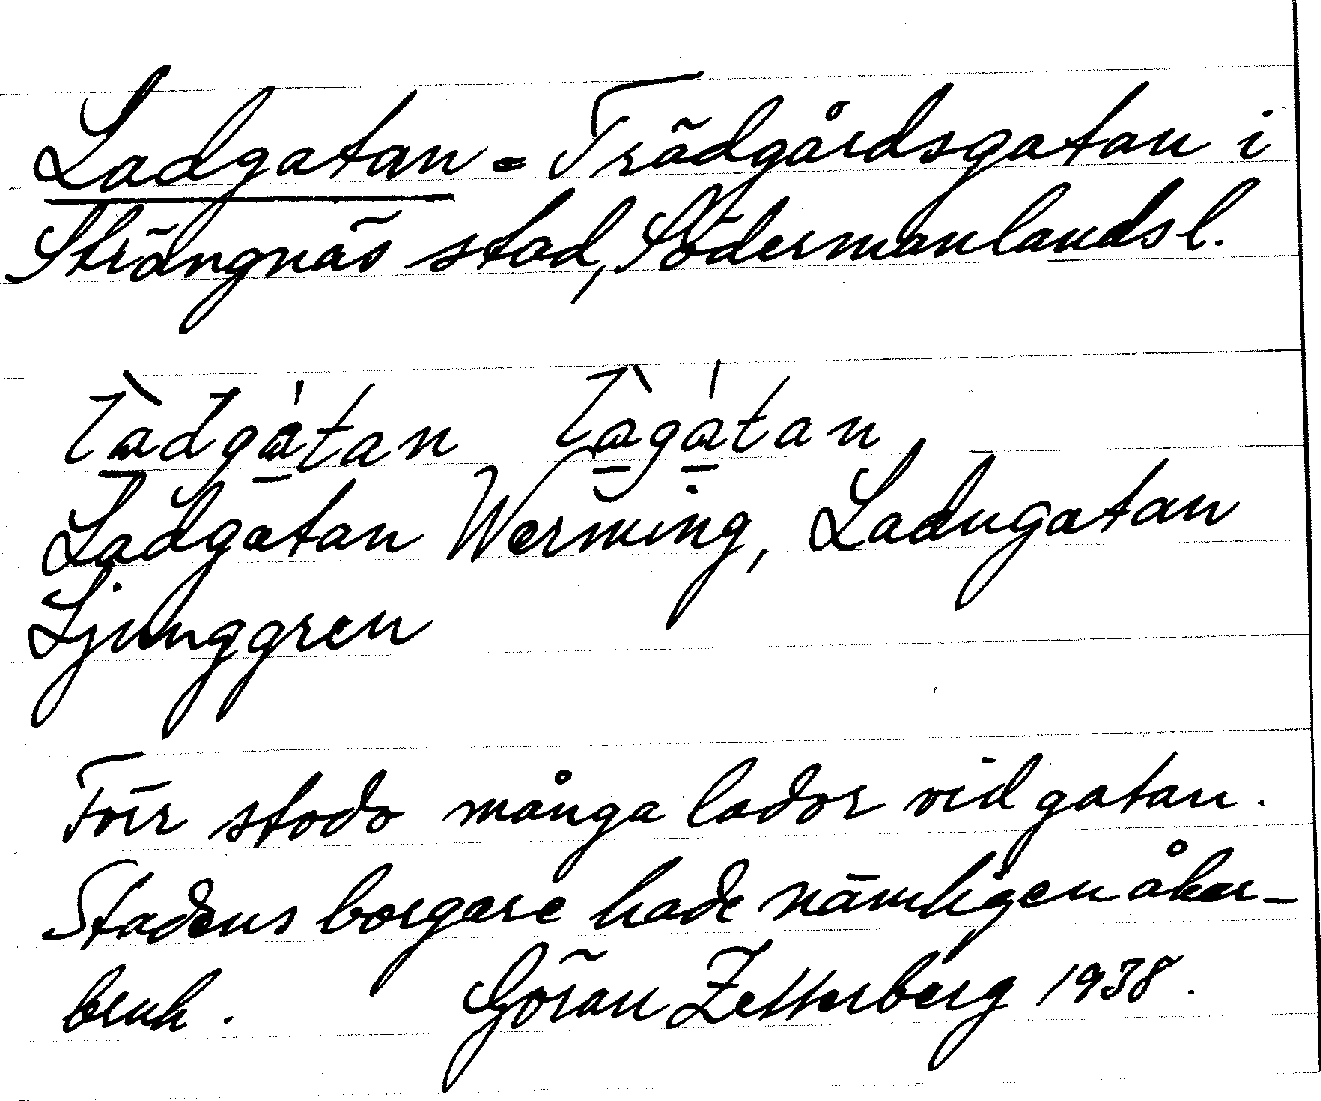 Ladgatan = Trädgårdsgatan i
Strängnäs stad, Södermanlands l.
làdgátan làgátan
Ladgatan Werming, Ladugatan
Ljunggren
Förr stodo många lador vid gatan.
Stadens borgare hade nämligen åker-
bruk. Göran Zetterberg 1938.